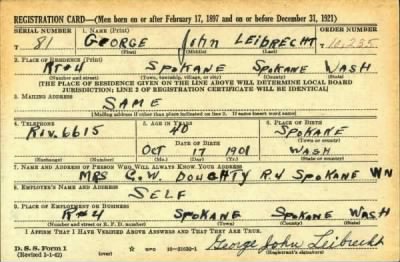 REGISTRATION CARD—(Men born on or after February 17, 1897 and on or before December 31, 1921)
SERIAL NUMBER 1. NAME (Print) ORDER NUMBER
T 81 GEORGE John LEIBRECHT 10,235
(First) (Middle) (Last)
2. PLACE OF RESIDENCE (Print)
Rt #4 SPOKANE SPOKANE WASH
(Number and street) (Town, township, village, or city) (County) (State)
(THE PLACE OF RESIDENCE GIVEN ON THE LINE ABOVE WILL DETERMINE LOCAL BOARD
JURISDICTION; LINE 2 OF REGISTRATION CERTIFICATE WILL BE IDENTICAL)
3. MAILING ADDRESS
SAME
(Mailing address if other than place indicated on line 2. If same insert word same)
4. TELEPHONE 5. AGE IN YEARS 6. PLACE OF BIRTH
Riv. 6615 40 SPOKANE
DATE OF BIRTH (Town or county)
OCT 17 1901 WASH
(Exchange) (Number) (Mo.) (Day) (Yr.) (State or country)
7. NAME AND ADDRESS OF PERSON WHO WILL ALWAYS KNOW YOUR ADDRESS
MRS G.W. DOUGHTY R4 SPOKANE WN
8. EMPLOYER'S NAME AND ADDRESS
SELF
9. PLACE OF EMPLOYMENT OR BUSINESS
Rt #4 SPOKANE SPOKANE WASH
(Number and street or R. F. D. number) (Town) (County) (State)
I AFFIRM THAT I HAVE VERIFIED ABOVE ANSWERS AND THAT THEY ARE TRUE.
D. S. S. Form 1 George John Leibrecht
(Revised 1-1-42) (over) (Registrant's signature)